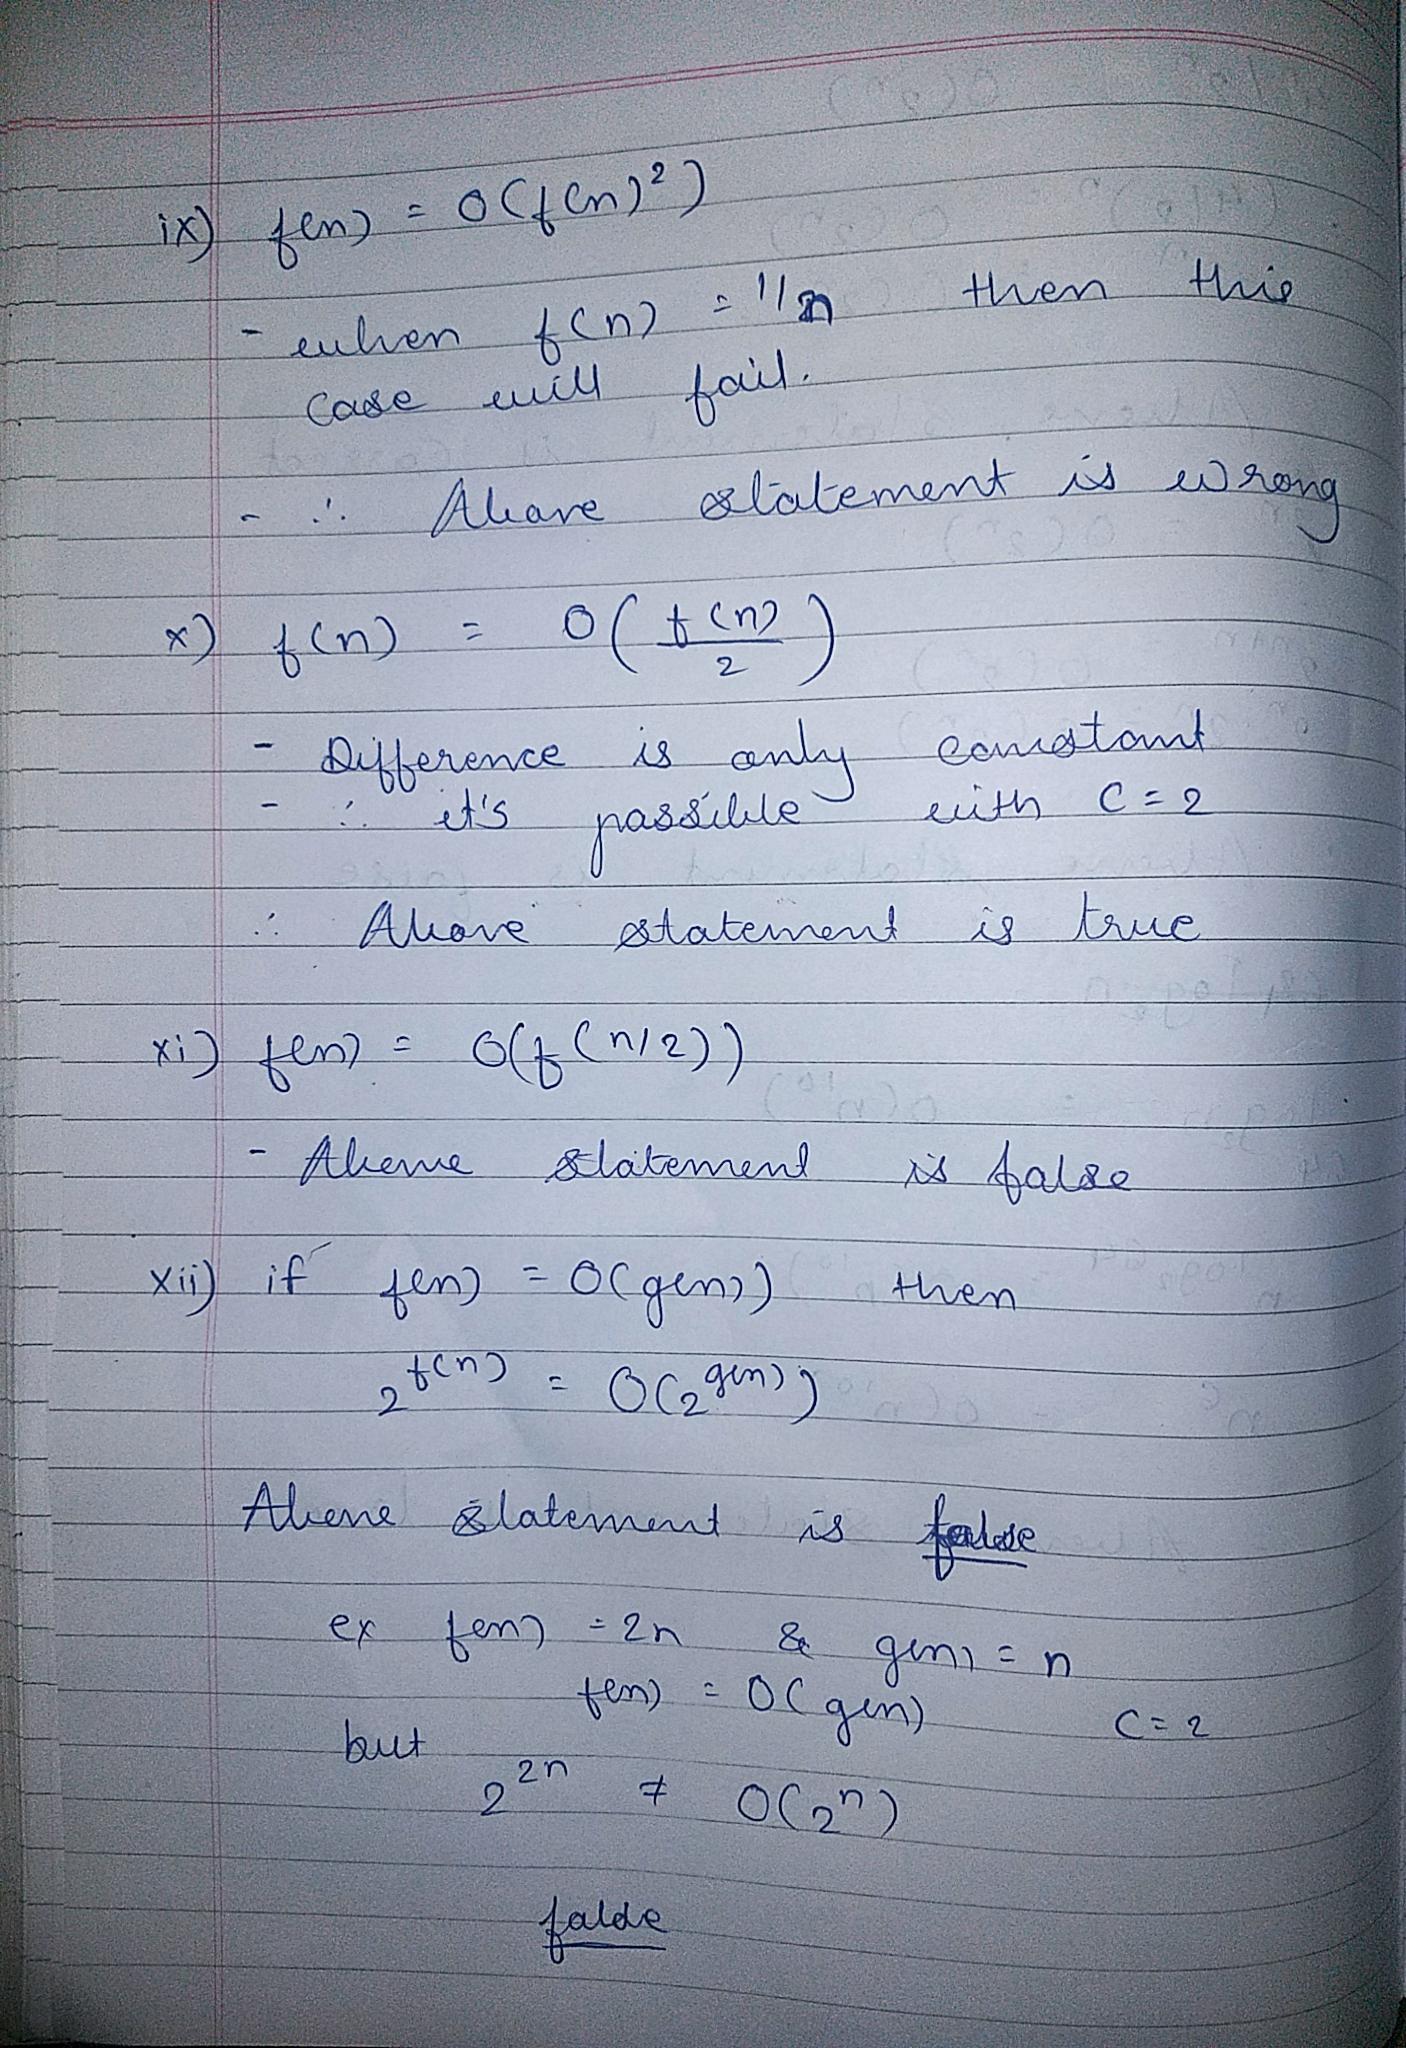 ix) f(n) = O(f(n)²)
- when f(n) = 1/n then this
case will fail.
- ∴ Above statement is wrong
x) f(n) = O(f(n)/2)
- Difference is only constant
- ∴ it's possible with C = 2
∴ Above statement is true
xi) f(n) = O(f(n/2))
- Above statement is false
xii) if f(n) = O(g(n)) then
2^f(n) = O(2^g(n))
Above statement is false
ex f(n) = 2n & g(n) = n
f(n) = O(g(n) C = 2
but
2^2n ≠ O(2^n)
false